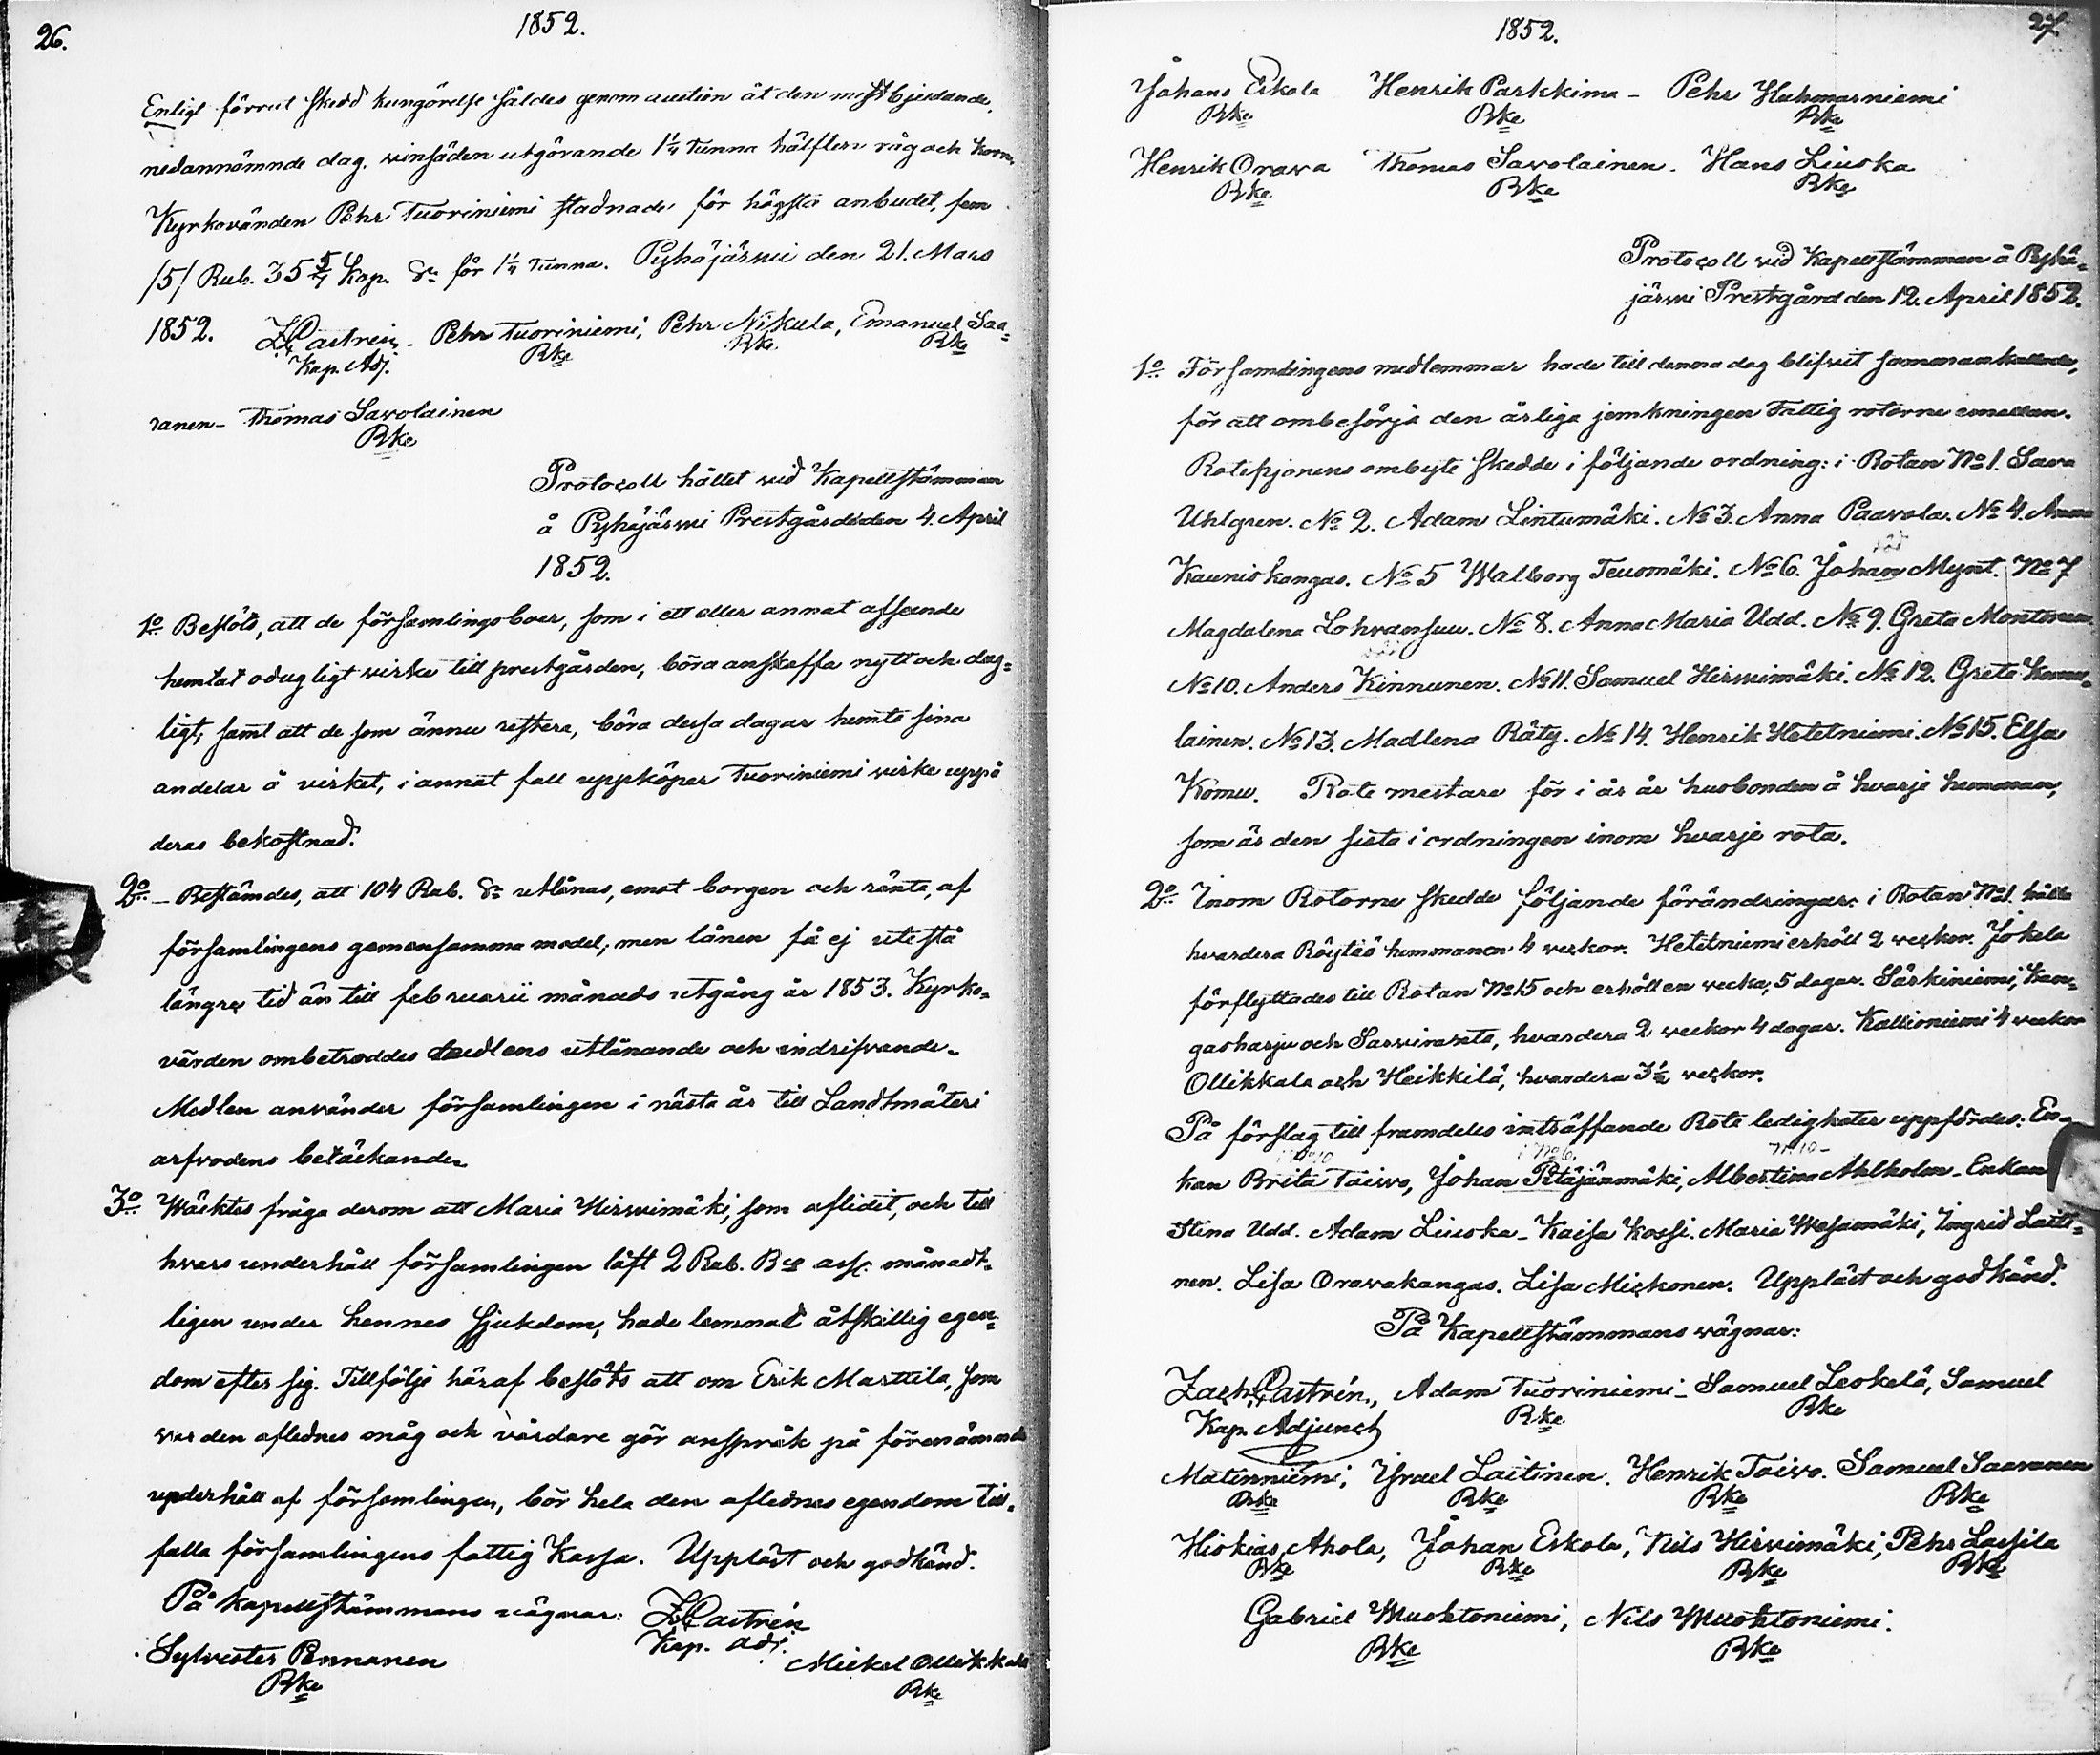 26.
1852.
Enligt förrut skedd kungörelse såldes genom auction åt den mestbjudande,
nedannämnde dag, vinsäden utgörande 1¼ tunna hälften råg och korn,
Kyrkovärden Pehr Tuoriniemi stadnade för högsta anbudet, fem
/5/ Rub. 35 5/7 Kop. Sr för 1¼ tunna. Pyhäjärwi den 21. Mars
1852. Z Castrén - Pehr Tuoriniemi, Pehr Nikula, Emanuel Saa-
Kap. Adj. Bke Bke Bke
ranen - Thomas Savolainen
Bke
Protocoll hållet vid Kapellstämman
å Pyhäjärwi Prestgård den 4. April
1852.
1o Beslöts, att de församlingsboer, som i ett eller annat afseende
hemtat odugligt virke till prestgården, böra anskaffa nytt och dug-
ligt, samt att de som ännu restera, böra dessa dagar hemta sina
andelar å virket, i annat fall uppköper Tuoriniemi virke uppå
deras bekostnad.
2o - Bestämdes, att 104 Rub. Sr utlånas, emot borgen och ränta, af
församlingens gemensamma medel; men lånen få ej utestå
längre tid än till februarii månads utgång år 1853. Kyrko-
värden ombetroddes medlens utlånande och indrifvande.
Medlen använder församlingen i nästa år till Landtmäteri
arfvodens betäckande.
3o Wäcktes fråga derom att Maria Hirvimäki, som aflidit, och till
hvars underhåll församlingen låft 2 Rub. Bco ass. månadt-
ligen under hennes sjukdom, hade lemnad åtskillig egen-
dom efter sig. Tillfölje häraf beslöts att om Erik Marttila, som
var den aflednes måg och vårdare gör anspråk på förenämnde
underhåll af församlingen, bör hela den aflednes egendom till-
falla församlingens fattig Kassa. Uppläst och godkänd.
På kapellstämmans vägnar: Z Castrén
Kap. adj.
Sylvester Pennanen Mickel Ollikkala
Bke Bke
1852.
27.
Johans Eskola Henrik Parkkima - Pehr Huhmarniemi
Bke Bke Bke
Henrik Orava Thomas Savolainen. Hans Liuska
Bke Bke Bke
Protocoll vid Kapellstämman å Pyhä-
järwi Prestgård den 12. April 1852.
1o Församlingens medlemmar hade till denna dag blifvit sammankallade,
för att ombesörja den årliga jemkningen Fattig rotorne emellan.
Rotehjonens ombyte skedde i följande ordning: i Rotan No 1. Sara
Uhlgren. No 2. Adam Lintumäki. No 3. Anna Paavola. No 4. Anna
Kauniskangas. No 5 Walborg Teuomäki. No 6. Johan Mynt. No 7
Magdalena Lohvansuu. No 8. Anna Maria Udd. No 9. Greta Montonen.
No 10. Anders Kinnunen. No 11. Samuel Hirvimäki. No 12. Greta Komu-
lainen. No 13. Madlena Räty. No 14. Henrik Hetetniemi. No 15. Elsa
Komu. Rote mestare för i år är husbonden å hvarje hemman,
som är den sista i ordningen inom hvarje rota.
2o Inom Rotorne skedde följande förändringar: i Rotan No 1. hålla
hvardera Röytiö hemmanen 4 veckor. Hetetniemi erhöll 2 veckor. Jokela
förflyttades till Rotan No 15 och erhöll en vecka, 5 dagar. Särkiniemi, Kan-
gasharju och Sarviranta, hvardera 2 veckor 4 dagar. Kallioniemi 4 veckor
Ollikkala och Heikkilä, hvardera 3½ veckor.
På förslag till framdeles inträffande Rote ledigheter uppfördes: En-
No 10 i No 6. No 10 -
kan Brita Toivo, Johan Pitäjänmäki, Albertina Ahlholm - Enkan
Stina Udd. Adam Liuska - Kaisa Kossi. Maria Wesamäki, Ingrid Laiti-
nen. Lisa Oravakangas. Lisa Mickonen. Uppläst och godkänd.
På Kapellstämmans vägnar:
Zach. Castrén, Adam Tuoriniemi - Samuel Leskelä, Samuel
Kap. Adjunct Bke Bke
Matinniemi, Israel Laitinen. Henrik Toivo. Samuel Saaranen
Bke Bke Bke Bke
Hiskias Ahola, Johan Eskola, Nils Hirvimäki, Pehr Lassila
Bke Bke Bke Bke
Gabriel Muoktoniemi, Nils Muoktoniemi.
Bke Bke